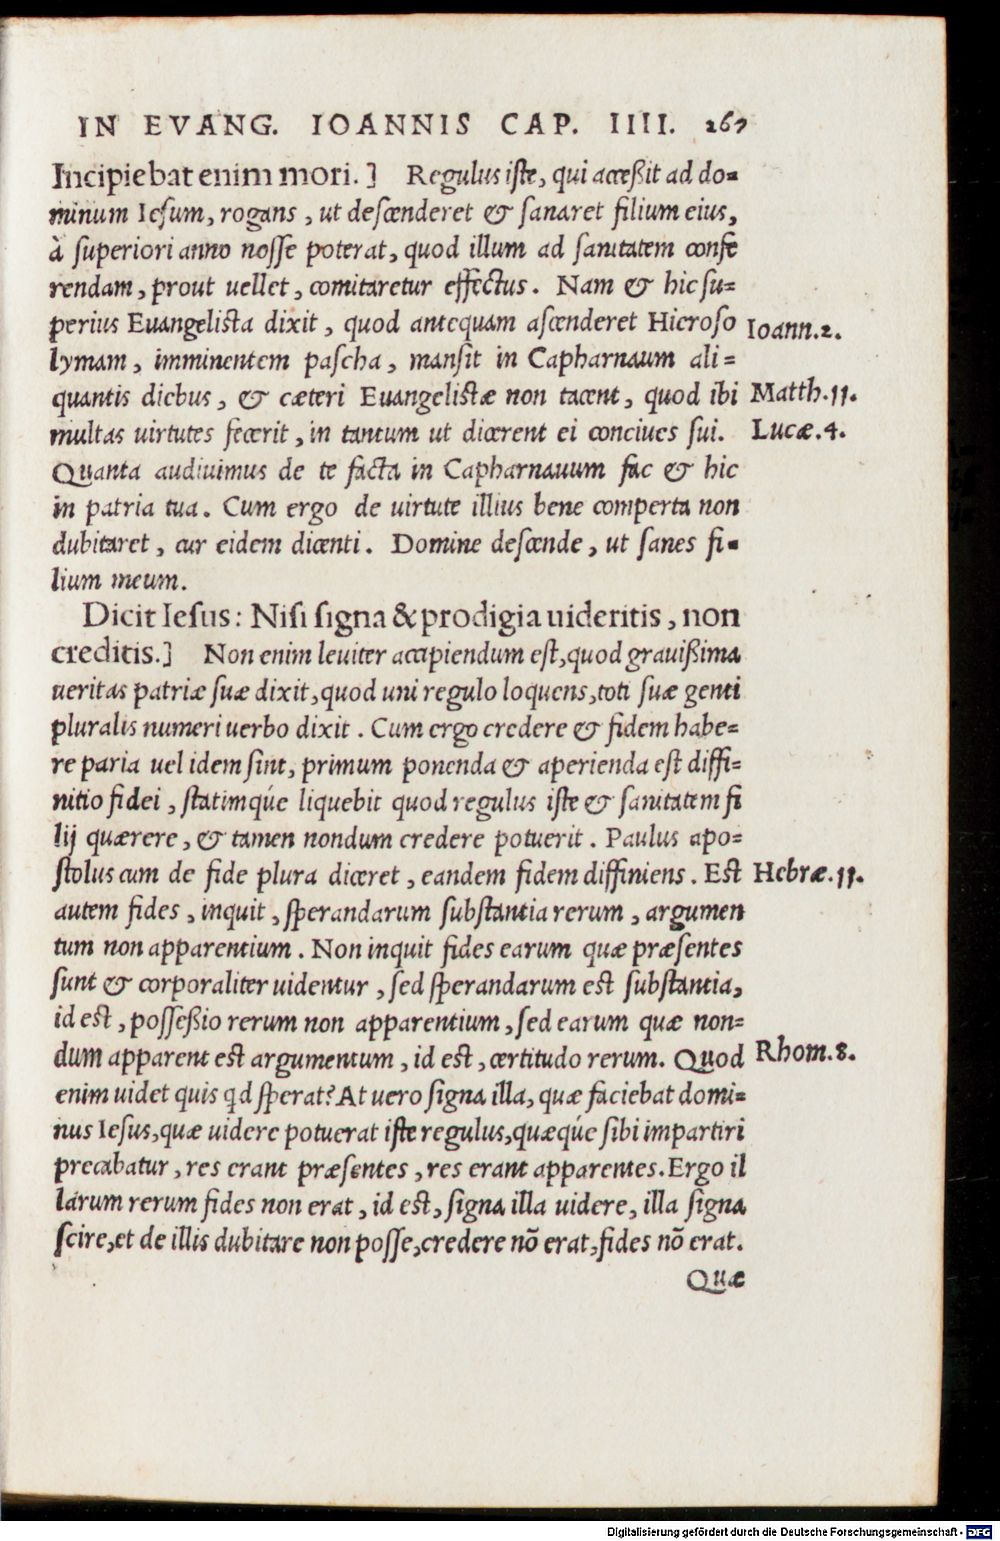 IN EVANG. IOANNIS CAP. IIII. 267
Incipiebat enim mori.] Regulus iste, qui accessit ad do-
minum Iesum, rogans, ut descenderet & sanaret filium eius,
à superiori anno nosse poterat, quod illum ad sanitatem confe
rendam, prout uellet, comitaretur effectus. Nam & hic su-
perius Euangelista dixit, quod antequam ascenderet Hieroso
Ioann.2.
lymam, imminentem pascha, mansit in Capharnaum ali-
quantis diebus, & cæteri Euangelistæ non tacent, quod ibi
Matth.11.
multas uirtutes fecerit, in tantum ut dicerent ei conciues sui.
Lucæ.4.
Quanta audiuimus de te facta in Capharnauum fac & hic
in patria tua. Cum ergo de uirtute illius bene comperta non
dubitaret, cur eidem dicenti. Domine descende, ut sanes fi-
lium meum.
Dicit Iesus: Nisi signa & prodigia uideritis, non
creditis.] Non enim leuiter accipiendum est, quod grauissima
ueritas patriæ suæ dixit, quod uni regulo loquens, toti suæ genti
pluralis numeri uerbo dixit. Cum ergo credere & fidem habe-
re paria uel idem sint, primum ponenda & aperienda est diffi-
nitio fidei, statimq́ue liquebit quod regulus iste & sanitatem fi
lij quærere, & tamen nondum credere potuerit. Paulus apo-
stolus cum de fide plura diceret, eandem fidem diffiniens. Est
Hebræ.11.
autem fides, inquit, sperandarum substantia rerum, argumen
tum non apparentium. Non inquit fides earum quæ præsentes
sunt & corporaliter uidentur, sed sperandarum est substantia,
id est, possessio rerum non apparentium, sed earum quæ non-
dum apparent est argumentum, id est, certitudo rerum. Quod
Rhom.8.
enim uidet quis qd sperat? At uero signa illa, quæ faciebat domi-
nus Iesus, quæ uidere potuerat iste regulus, quæq́ue sibi impartiri
precabatur, res erant præsentes, res erant apparentes. Ergo il
larum rerum fides non erat, id est, signa illa uidere, illa signa
scire, et de illis dubitare non posse, credere nõ erat, fides nõ erat.
Quæ
Digitalisierung gefördert durch die Deutsche Forschungsgemeinschaft - DFG